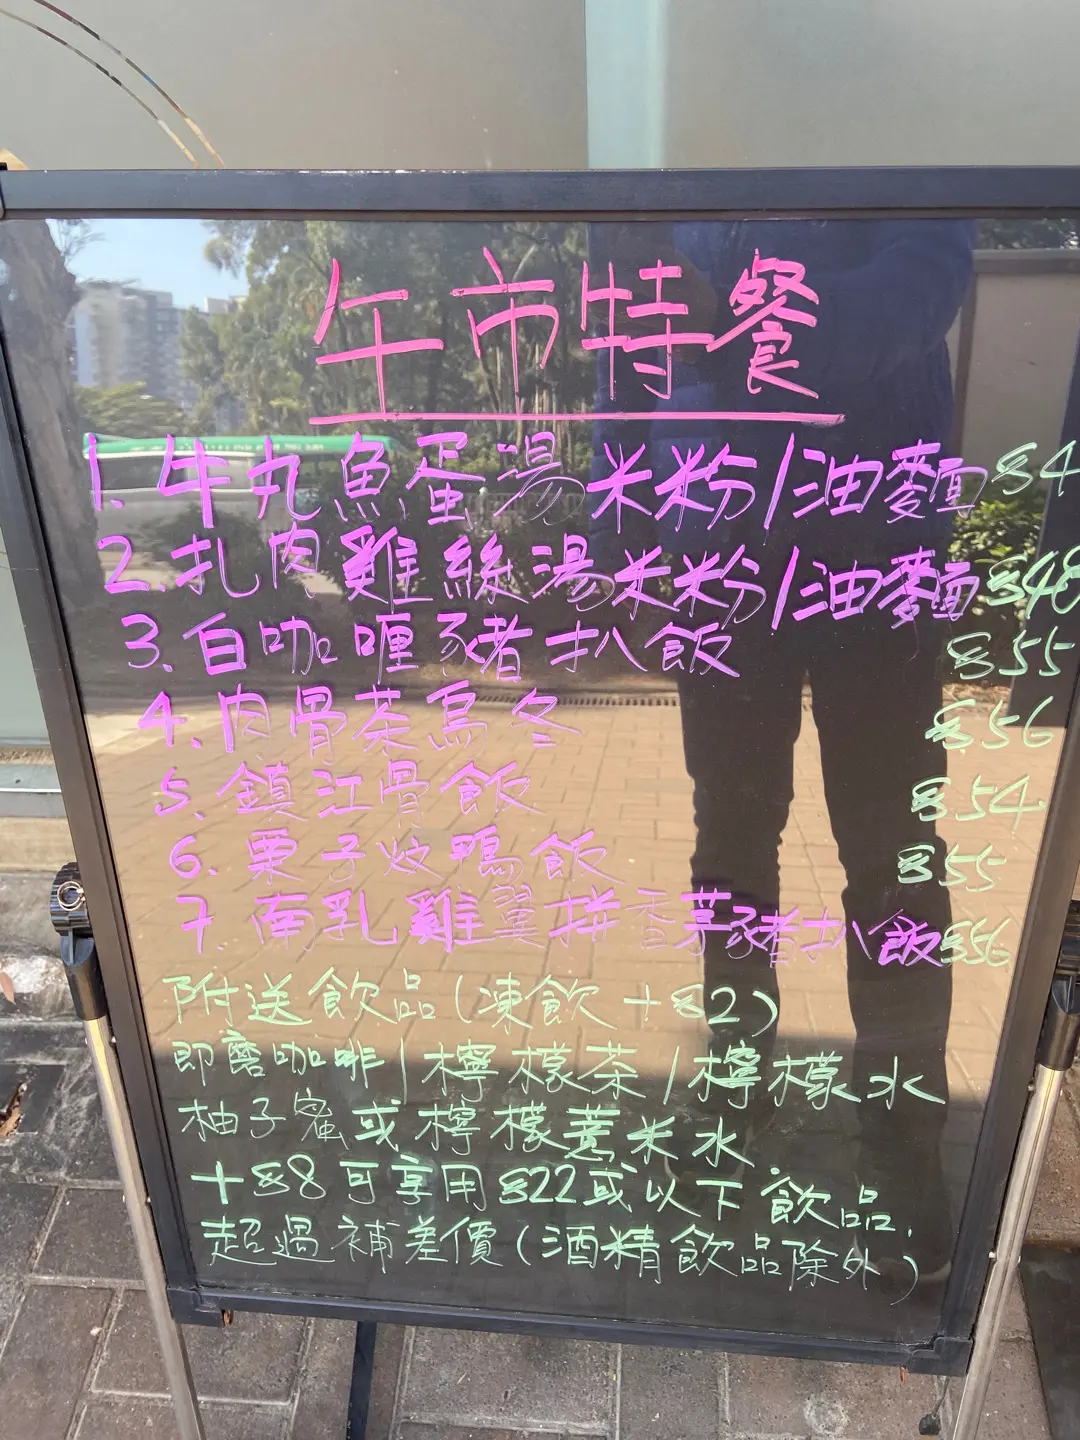 午市特餐
1. 牛丸魚蛋湯米粉/油麵 $4
2. 扎肉雞絲湯米粉/油麵 $48
3. 白咖喱豬扒飯 $55
4. 肉骨茶烏冬 $56
5. 鎮江骨飯 $54
6. 栗子炆鴨飯 $55
7. 南乳雞翼拼香茅豬扒飯 $56
附送飲品(凍飲+$2)
即磨咖啡/檸檬茶/檸檬水
柚子蜜或檸檬薏米水
+$8可享用$22或以下飲品,
超過補差價(酒精飲品除外)